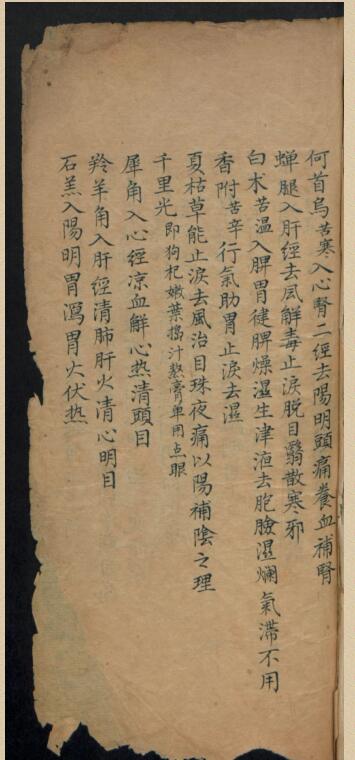 何首烏苦寒入心腎二經去陽明頭痛養血補腎
蟬腿入肝經去風解毒止淚脫目翳散寒邪
白朮苦温入脾胃徤脾燥濕生津液去胞臉濕爛氣滯不用
香附苦辛行氣助胃止淚去濕
夏枯草能止淚去風治目珠夜痛以陽補陰之理
千里光即狗杞嫩葉搗汁熬膏单用点眼
犀角入心經凉血解心热清頭目
羚羊角入肝經清肺肝火清心明目
石羔入陽明胃瀉胃火伏热